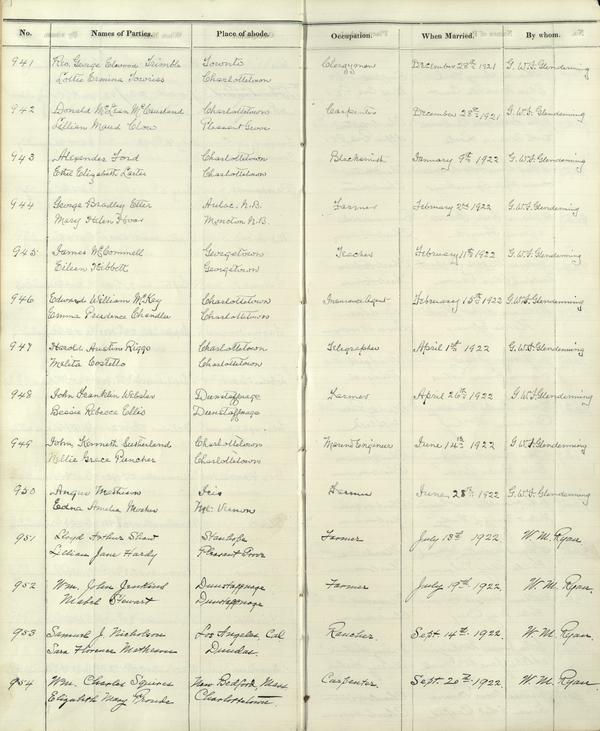 No. Names of Parties. Place of abode. Occupation. When Married. By whom.
941 Rev. George Elswood Trimble Toronto Clergyman December 28th 1921 G. W. F. Glendenning
Lottie Ermina Charlottetown
942 Donald McLean Charlottetown Carpenter December 28th 1921 G. W. F. Glendenning
Lillian Maud Clow Pleasant Grove
943 Alexander Ford Charlottetown Blacksmith January 9th 1922 G. W. F. Glendenning
Ethel Elizabeth Charlottetown
944 George Bradley Etter Aulac. N.B. Farmer February 2nd 1922 G. W. F. Glendenning
Mary Helen Moncton N.B.
945 James McConnell Georgetown Teacher February 11th 1922 G. W. F. Glendenning
Eileen Georgetown
946 Edward William McKey Charlottetown Insurance Agent February 15th 1922 G. W. F. Glendenning
Emma Prudence Chandler Charlottetown
947 Harold Austin Riggs Charlottetown Telegrapher April 1st 1922 G. W. F. Glendenning
Melita Costello Charlottetown
948 John Franklin Webster Dunstaffnage Farmer April 26th 1922 G. W. F. Glendenning
Bessie Rebecca Ellis Dunstaffnage
949 John Kenneth Sutherland Charlottetown Marine Engineer June 14th 1922 G. W. F. Glendenning
Nellie Grace Puncher Charlottetown
950 Angus Matheson Iris Farmer June 28th 1922 G. W. F. Glendenning
Edna Amelia Mt. Vernon
951 Lloyd Arthur Shaw Stanhope Farmer July 18th 1922 W. M. Ryan.
Lillian Jane Hardy Pleasant Grove
952 Wm. John Jenkins Dunstaffnage Farmer July 19th 1922, W. M. Ryan.
Mabel Stewart Dunstaffnage
953 Samuel J. Nicholson Los Angeles, Cal Rancher. Sept 14th 1922. W. M. Ryan.
Sara Florence Matheson Dundas.
954 Wm. Charles Squires New Bedford, Mass Carpenter. Sept. 20th 1922. W. M. Ryan.
Elizabeth May Charlottetown.